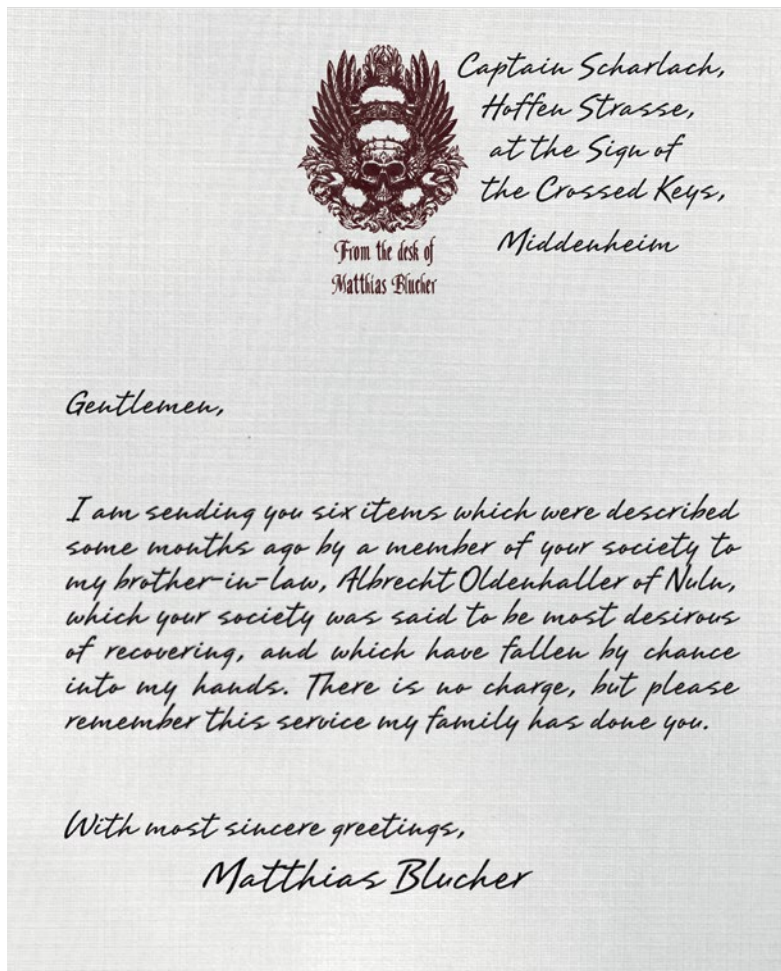 Captain Scharlach,
Hoffen Strasse,
at the Sign of
the Crossed Keys,
Middenheim
From the desk of
Matthias Blucher
Gentlemen,
I am sending you six items which were described
some months ago by a member of your society to
my brother-in-law, Albrecht Oldenhaller of Nuln,
which your society was said to be most desirous
of recovering, and which have fallen by chance
into my hands. There is no charge, but please
remember this service my family has done you.
With most sincere greetings,
Matthias Blucher